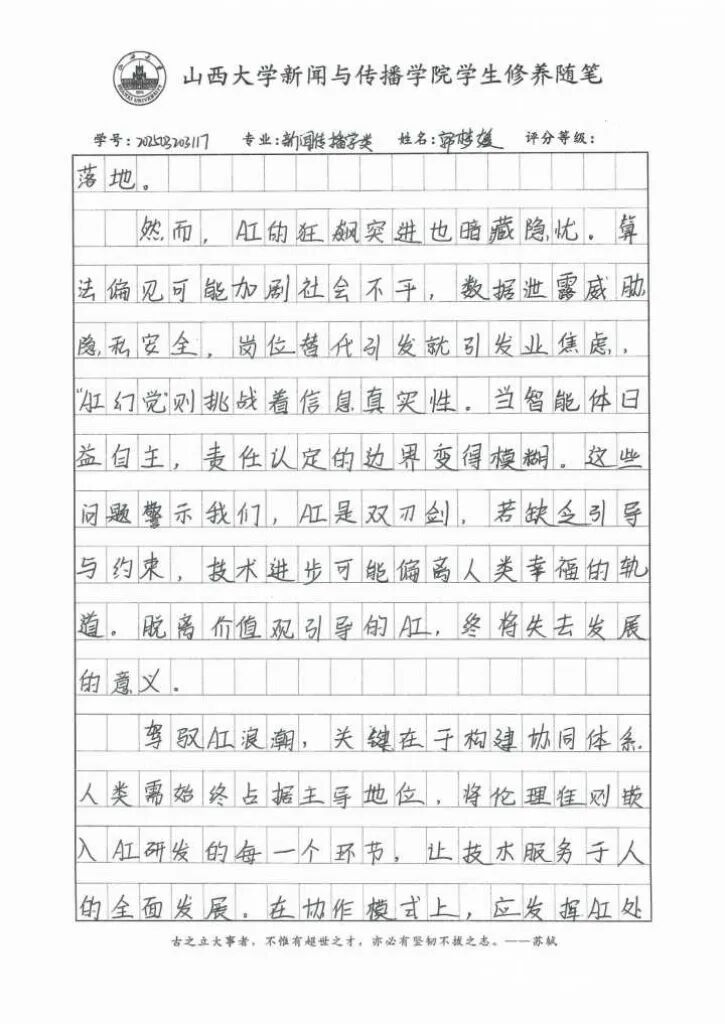 山西大学新闻与传播学院学生修养随笔
学号：202503203117 专业：新闻传播学类 姓名：郭梦媛 评分等级：
落地。
然而，AI的狂飙突进也暗藏隐忧。算
法偏见可能加剧社会不平，数据泄露威胁
隐私安全，岗位替代引发就引发业焦虑，
"AI幻觉"则挑战着信息真实性。当智能体日
益自主，责任认定的边界变得模糊。这些
问题警示我们，AI是双刃剑，若缺乏引导
与约束，技术进步可能偏离人类幸福的轨
道。脱离价值观引导的AI，终将失去发展
的意义。
驾驭AI浪潮，关键在于构建协同体系
人类需始终占据主导地位，将伦理准则嵌
入AI研发的每一个环节，让技术服务于人
的全面发展。在协作模式上，应发挥AI处
古之立大事者，不惟有超世之才，亦必有坚韧不拔之志。——苏轼